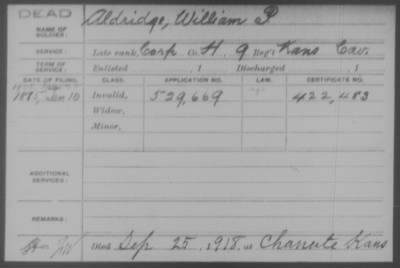 DEAD
NAME OF SOLDIER: Aldridge, William P
SERVICE: Late rank, Corp Co. H, 9 Reg't Kans Cav.
TERM OF SERVICE: Enlisted 1 Discharged , 1
DATE OF FILING. CLASS. APPLICATION NO. LAW. CERTIFICATE NO.
1885, Jan 10 Invalid, 529,669 422,483
Widow,
Minor,
ADDITIONAL SERVICES:
REMARKS:
Died Sep 25, 1918, at Chanute Kans